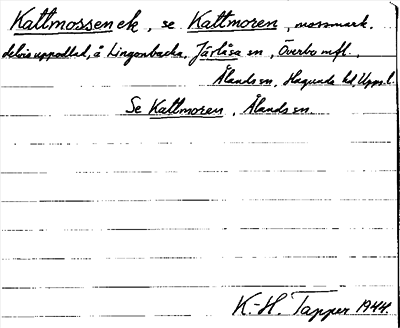 Kattmossen ek, se Kattmoren, mossmark,
delvis uppodlad, å Lingonbacka, Järlåsa sn, Överbo mfl.,
Ålands sn, Hagunda hd, Upps.l.
Se Kattmoren, Ålands sn.
K.-H. Tapper 1944.